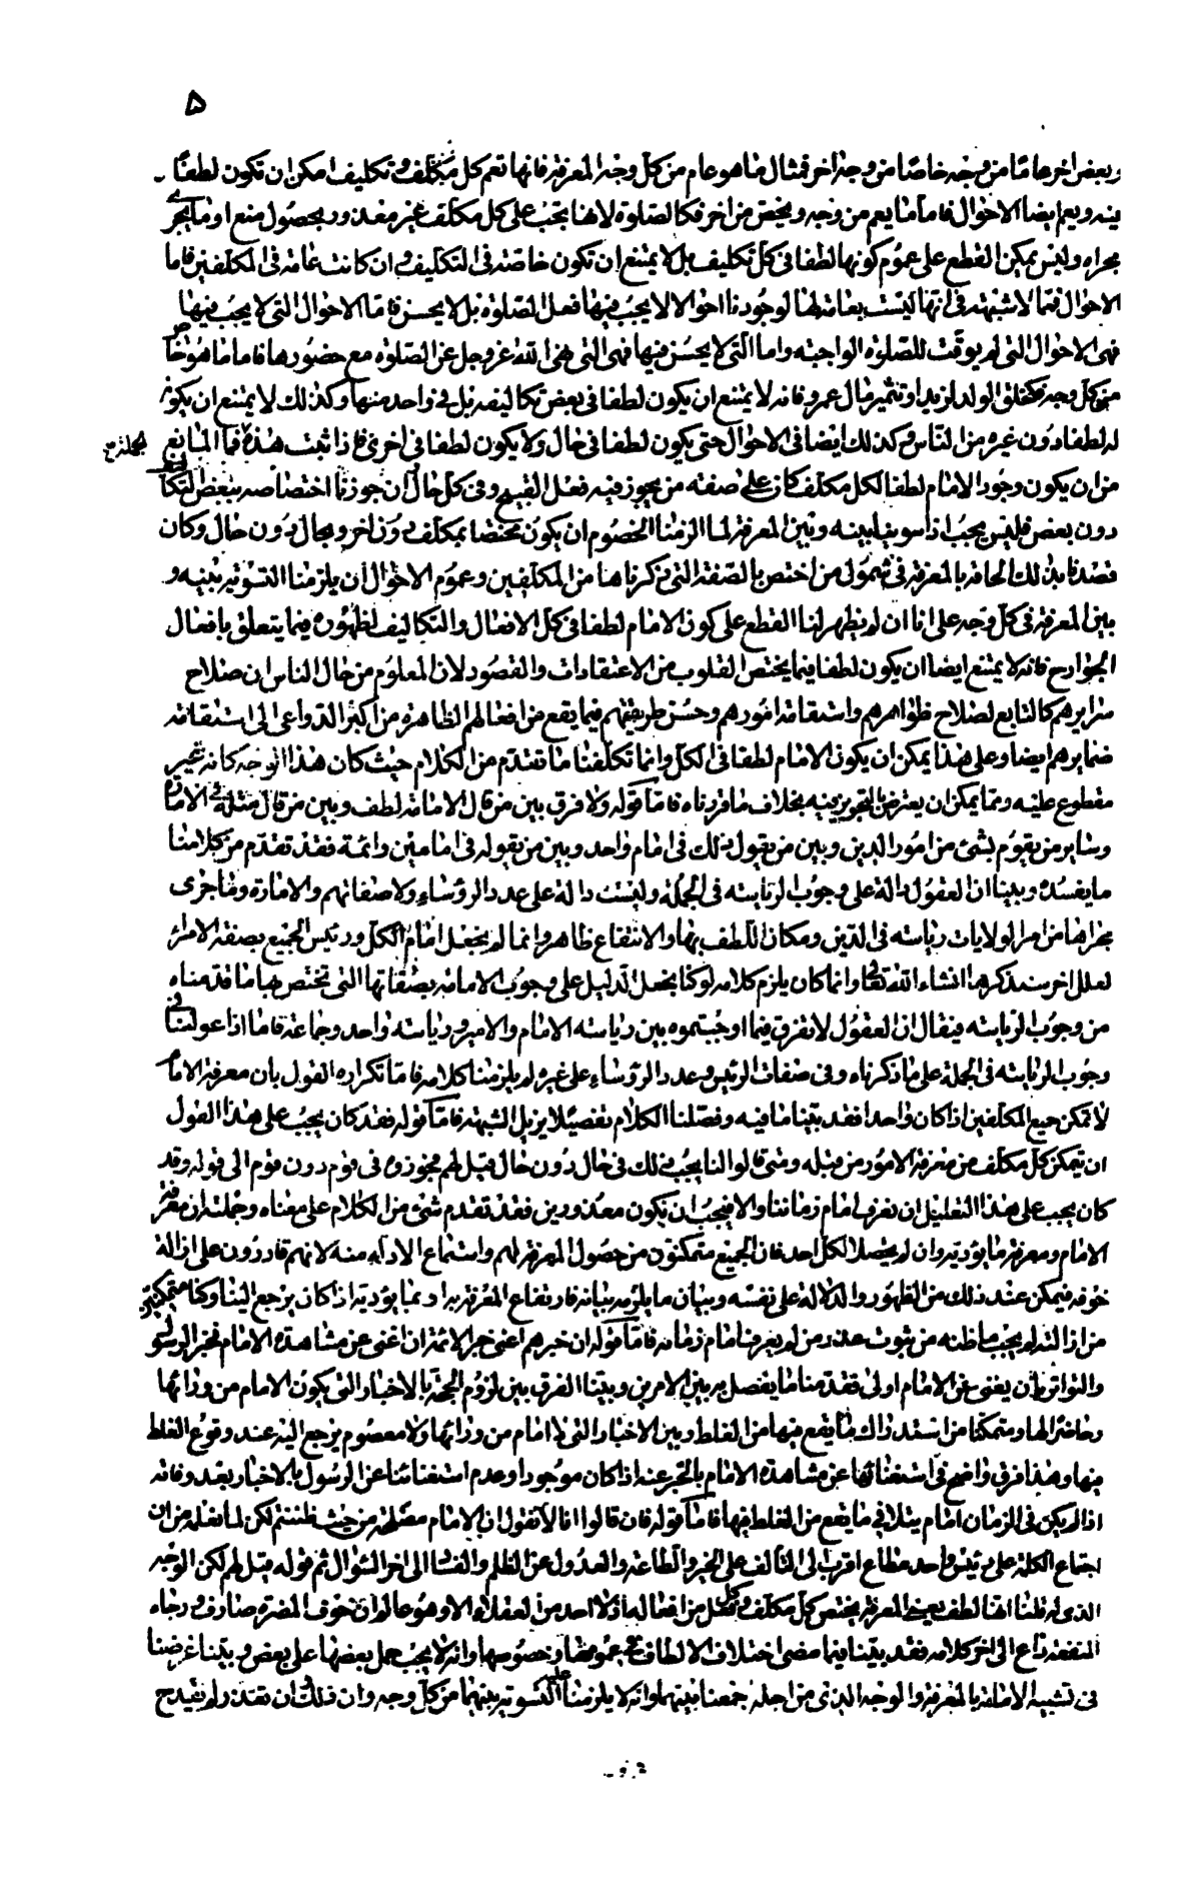 ۵
وبعض اخر عاما من وجه خاصا من وجه اخر فمثال ما هو عام من كل وجه المعرفة فانها تعم كل مكلف وتكليف امكن ان تكون لطفا
فيه ويعم ايضا الاحوال فاما ما يعم من وجه ويخص من اخر فكالصلوة لانها تجب على كل مكلف غير معذور بحصول منع او ما يجرى
مجراه وليس يمكن القطع على عموم كونها لطفا فى كل تكليف بل لا يمتنع ان تكون خاصة فى التكليف وان كانت عامة فى المكلفين فاما
الاحوال فمما لا شبهة فى انها ليست بعامة لها لوجودنا احوالا لا يجب فيها فعل الصلوة بل لا يحسن فاما الاحوال التى لا يجب فيها
فهى الاحوال التى لم يوقت للصلوة الواجبة واما التى لا يحسن فيها فهى التى نهى الله عز وجل عن الصلوة مع حضورها فاما ما هو خاص
من كل وجه فكخلق الولد لزيد او تثمير مال عمرو فانه لا يمتنع ان يكون لطفا فى بعض تكاليفه بل فى واحد منها وكذلك لا يمتنع ان يكون
له لطفا دون غيره من الناس وكذلك ايضا فى الاحوال حتى يكون لطفا فى حال ولا يكون لطفا فى اخرى فاذا ثبت هذه فما المانع
من ان يكون وجود الامام لطفا لكل مكلف كان على صفة من يجوز فيه فعل القبيح وفى كل حال ان جوزنا اختصاصه ببعض التكاليف
دون بعض فليس يجب اذا سوينا بينه وبين المعرفة لما الزمنا الخصوم ان يكون مختصا بمكلف دون اخر وبحال دون حال وكان
قصدنا بذلك الحاقه بالمعرفة فى شمول من اختص بالصفة التى ذكرناها من المكلفين وعموم الاحوال ان يلزمنا التسوية بينه و
بين المعرفة فى كل وجه على انا ان لم يظهر لنا القطع على كون الامام لطفا فى كل الافعال والتكاليف لظهوره فيما يتعلق بافعال
الجوارح فانه لا يمتنع ايضا ان يكون لطفا فيما يختص القلوب من الاعتقادات والقصود لان المعلوم من حال الناس ان صلاح
سرايرهم كالتابع لصلاح ظواهرهم واستقامة امورهم وحسن طريقتهم فيما يقع من افعالهم الظاهرة من اكبر الدواعى الى استقامة
ضمايرهم ايضا وعلى هذا يمكن ان يكون الامام لطفا فى الكل وانما تكلفنا ما تقدم من الكلام حيث كان هذا الوجه كانه غير
مقطوع عليه ومما يمكن ان يعترض التجويز فيه بخلاف ما قررناه فاما قوله ولا فرق بين من قال الامامة لطف وبين من قال مثله فى الامارة
وساير من يقوم بشئ من امور الدين وبين من يقول بذلك فى امام واحد وبين من يقوله فى امامين وائمة فقد تقدم من كلامنا
ما يفسده وبينا ان العقول دالة على وجوب الرياسة فى الجملة وليست دالة على عدد الرؤساء ولا صفاتهم والامارة وما جرى
مجراها من امر الولايات رياسة فى الدين ومكان اللطف بها والانتفاع ظاهر وانما لم يجعل امام الكل ورئيس الجميع بصفة الامراء
لعلل اخر سنذكرها انشاء الله تعا وانما كان يلزم كلامه لو كنا نجعل الدليل على وجوب الامامة بصفاتها التى تختص بها ما قدمناه
من وجوب الرياسة فيقال ان العقول لا تفرق فيما اوجبتموه بين رياسة الامام والامير ورياسة واحد وجماعة فاما اذا عولنا فى
وجوب الرياسة فى الجملة على ما ذكرناه وفى صفات الرئيس وعدد الرؤساء على غيره لم يلزمنا كلامه فاما تكراره القول بان معرفة الامام
لا تمكن جميع المكلفين اذا كان واحدا فقد بينا ما فيه وفصلنا الكلام تفصيلا يزيل الشبهة فاما قوله فقد كان يجب على هذا القول
ان يتمكن كل مكلف من معرفة الامور من قبله ومتى قالوا انما يجب ذلك فى حال دون حال قيل لهم فجوزوه فى قوم دون قوم الى قوله وقد
كان يجب على هذا التعليل ان نعرف امام زماننا والا فيجب ان يكون معذورين فقد تقدم شئ من الكلام على معناه وجملته ان معرفة
الامام ومعرفة ما يؤديه وان لم يحصلا لكل احد فان الجميع متمكنون من حصول المعرفة لهم واستماع الاداء منه لانهم قادرون على ازالة
خوفه فيمكن عند ذلك من الظهور والدلالة على نفسه وبيان ما يلزمه بيانه فارتفاع المعرفة به او بما يؤديه اذا كان يرجع الينا وكنا متمكنين
من ازالته لم يجب ما ظنه من ثبوت عذر من لم يعرف امام زمانه فاما قوله ان خبرهم اعنى خبر الائمة ان اغنى عن مشاهدة الامام فخبر الرسول
والتواتر بان يغنى عن الامام اولى فقد قدمنا ما يفصل به بين الامرين وبينا الفرق بين لزوم الحجة بالاخبار التى يكون الامام من ورائها
وحافظا لها ومتمكنا من استدراك ما يقع فيها من الغلط وبين الاخبار التى لا امام من ورائها ولا معصوم يرجع اليه عند وقوع الغلط
فيها وهذا فرق واضح فى استغنائنا عن مشاهدة الامام بالخبر عنه اذا كان موجودا وعدم استغنائنا عن الرسول بالاخبار بعد وفاته
اذا لم يكن فى الزمان امام يتلافى ما يقع من الغلط فيها فاما قوله فان قالوا انا لا نقول ان الامام مصلحة من حيث ظننتم لكن لما نعلمه من ان
اجتماع الكلمة على رئيس واحد مطاع اقرب الى التالف على الخير والطاعة والعدول عن الظلم والفساد الى اخر السؤال ثم قوله قيل لهم لكن الوجه
الذى له قلنا انها لطف يعنى المعرفة يختص كل مكلف وكل فعل من افعاله اذ لا احد من العقلاء الا وهو عالم ان خوف المضرة صارف ورجاء
المنفعة داع الى اخر كلامه فقد بينا فيما مضى اختلاف الالطاف فى عمومها وخصوصها وانه لا يجب حمل بعضها على بعض وبينا غرضنا
فى تشبيه الامامة بالمعرفة والوجه الذى من اجله جمعنا بينهما وانه لا يلزمنا عليه التسوية بينهما من كل وجه وان ذلك ان تعذر لم يقدح